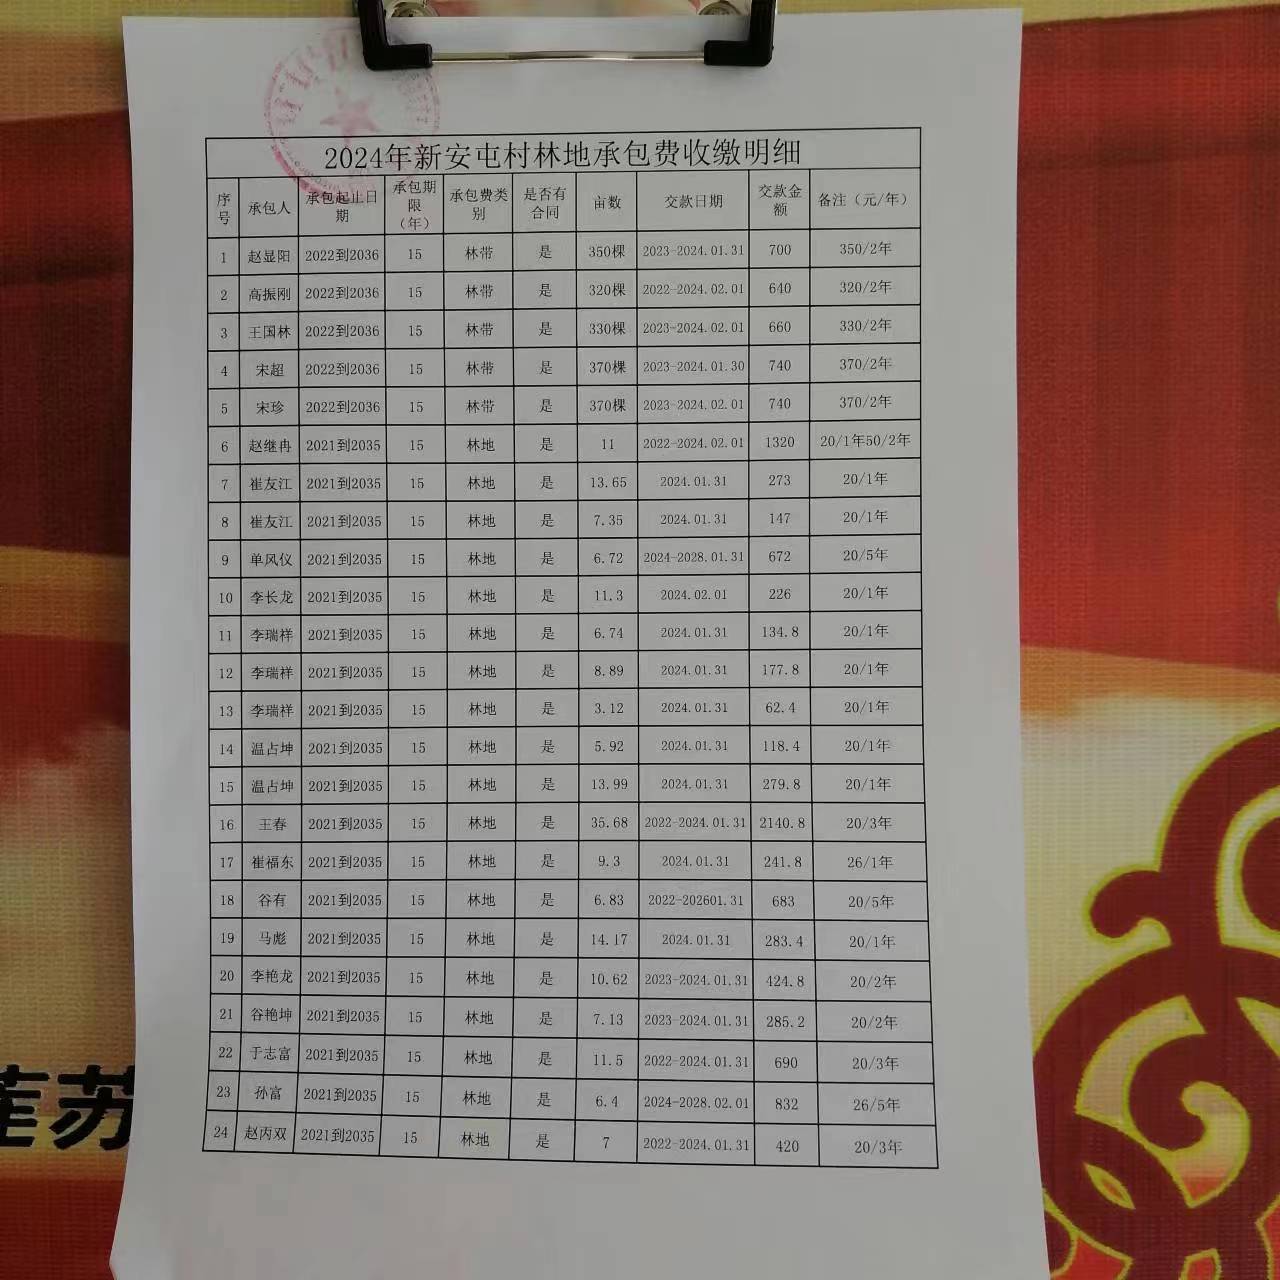 2024年新安屯村林地承包费收缴明细
序号 承包人 承包起止日期 承包期限（年） 承包费类别 是否有合同 亩数 交款日期 交款金额 备注（元/年）
1 赵显阳 2022到2036 15 林带 是 350棵 2023-2024.01.31 700 350/2年
2 高振刚 2022到2036 15 林带 是 320棵 2022-2024.02.01 640 320/2年
3 王国林 2022到2036 15 林带 是 330棵 2023-2024.02.01 660 330/2年
4 宋超 2022到2036 15 林带 是 370棵 2023-2024.01.30 740 370/2年
5 宋珍 2022到2036 15 林带 是 370棵 2023-2024.02.01 740 370/2年
6 赵继冉 2021到2035 15 林地 是 11 2022-2024.02.01 1320 20/1年50/2年
7 崔友江 2021到2035 15 林地 是 13.65 2024.01.31 273 20/1年
8 崔友江 2021到2035 15 林地 是 7.35 2024.01.31 147 20/1年
9 单风仪 2021到2035 15 林地 是 6.72 2024-2028.01.31 672 20/5年
10 李长龙 2021到2035 15 林地 是 11.3 2024.02.01 226 20/1年
11 李瑞祥 2021到2035 15 林地 是 6.74 2024.01.31 134.8 20/1年
12 李瑞祥 2021到2035 15 林地 是 8.89 2024.01.31 177.8 20/1年
13 李瑞祥 2021到2035 15 林地 是 3.12 2024.01.31 62.4 20/1年
14 温占坤 2021到2035 15 林地 是 5.92 2024.01.31 118.4 20/1年
15 温占坤 2021到2035 15 林地 是 13.99 2024.01.31 279.8 20/1年
16 王春 2021到2035 15 林地 是 35.68 2022-2024.01.31 2140.8 20/3年
17 崔福东 2021到2035 15 林地 是 9.3 2024.01.31 241.8 26/1年
18 谷有 2021到2035 15 林地 是 6.83 2022-202601.31 683 20/5年
19 马彪 2021到2035 15 林地 是 14.17 2024.01.31 283.4 20/1年
20 李艳龙 2021到2035 15 林地 是 10.62 2023-2024.01.31 424.8 20/2年
21 谷艳坤 2021到2035 15 林地 是 7.13 2023-2024.01.31 285.2 20/2年
22 于志富 2021到2035 15 林地 是 11.5 2022-2024.01.31 690 20/3年
23 孙富 2021到2035 15 林地 是 6.4 2024-2028.02.01 832 26/5年
24 赵丙双 2021到2035 15 林地 是 7 2022-2024.01.31 420 20/3年
苏